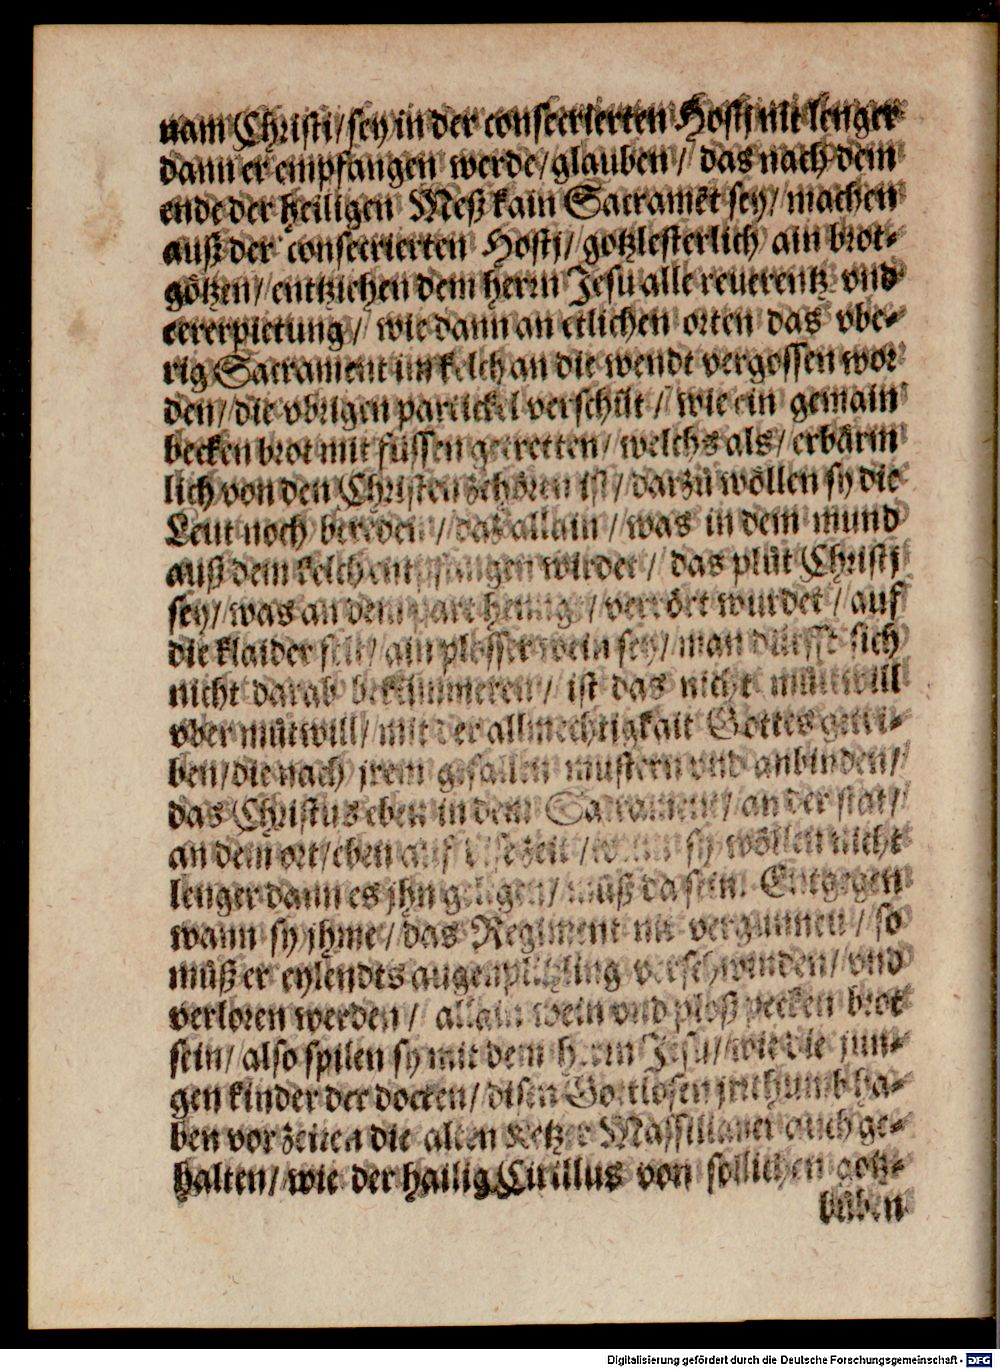 nam Christi / sey in der consecrierten Hostj nit lenger
dann er empfangen werde / glauben / das nach dem
ende der heiligen Meß kain Sacramēt sey / machen
auß der consecrierten Hostj / gotzlesterlich ain brot-
götzen / entziehen dem herrn Jesu alle reuerentz vnd
eererpietung / wie dann an etlichen orten das vbe-
rig Sacrament im kelch an die wendt vergossen wor
den / die vbrigen partickel verschilt / wie ein gemain
becken brot mit füssen getretten / welchs als / erbärm
lich von den Christen zehören ist / darzů wöllen sy die
Leut noch bereden / das allain / was in dem mund
auß dem kelch empfangen wirdet / das plůt Christj
sey / was an dem part heng / verrört wurdet / auf
die klaider felt / ain plosser wein sey / man dürfft sich
nicht darab bekümmeren / ist das nicht můtwill
vber můtwill / mit der allmechtigkait Gottes getri-
ben / die nach jrem gefallen mustern vnd anbinden /
das Christus eben in dem Sacrament / an der stat /
an dem ort / eben auf dise zeit / wann sy wöllen nicht
lenger dann es jhn gelegen / můß da sein. Entgegen
wann sy jhme / das Regiment nit vergunnen / so
můß er eylendts augenplitzling verschwinden / vnd
verloren werden / allain wein vnd ploß pecken brot
sein / also spilen sy mit dem herrn Jesu / wie die jun-
gen kinder der docken / disen Gottlosen jrthumb ha-
ben vor zeiten die alten Ketzer Massilianer auch ge-
halten / wie der hailig Cirillus von sollichen gotz-
bůben
Digitalisierung gefördert durch die Deutsche Forschungsgemeinschaft - DFG